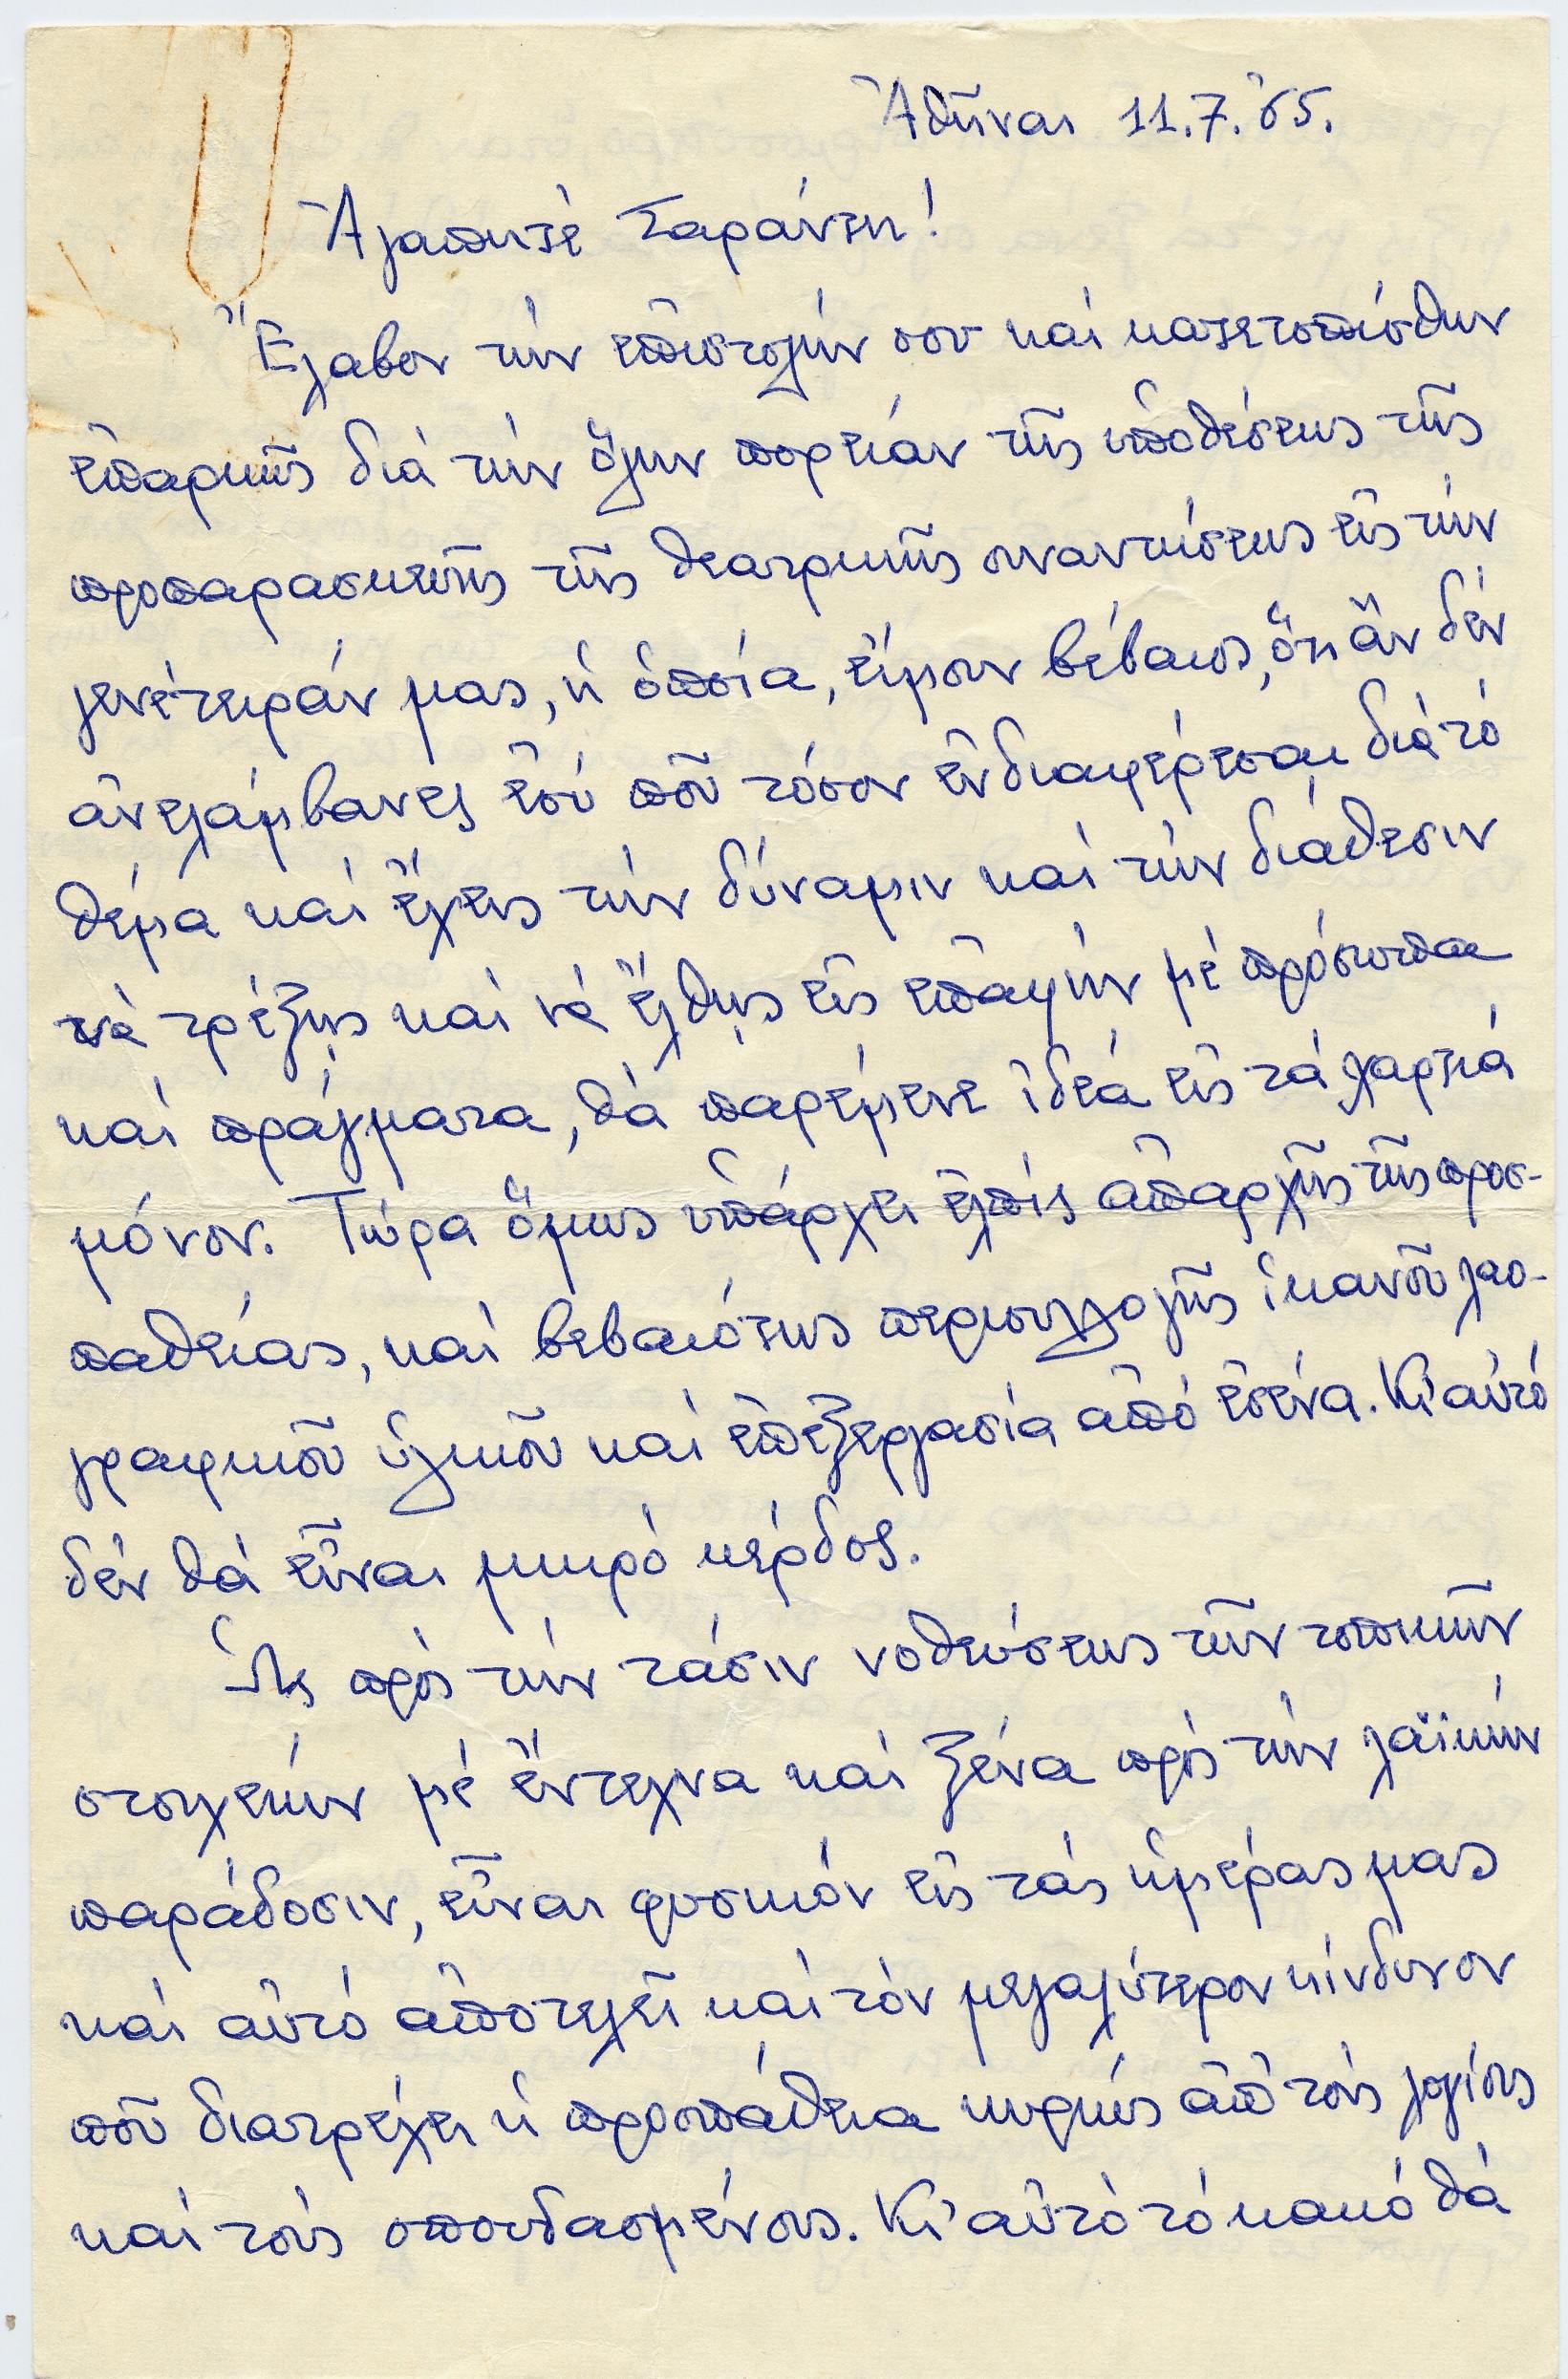 Ἀθῆναι 11.7.'65.
Ἀγαπητέ Σαράντη!
Ἔλαβον τήν ἐπιστολήν σου καί κατετοπίσθην
ἐπαρκῶς διά τήν ὅλην πορείαν τῆς ὑποθέσεως τῆς
προπαρασκευῆς τῆς θεατρικῆς συναντήσεως εἰς τήν
γενέτειράν μας, ἡ ὁποία, εἴμουν βέβαιος, ὅτι ἄν δέν
ἀνελάμβανες ἐσύ ποῦ τόσον ἐνδιαφέρεσαι διά τό
θέμα καί ἔχεις τήν δύναμιν καί τήν διάθεσιν
νά τρέξης καί νά ἔλθης εἰς ἐπαφήν μέ πρόσωπα
καί πράγματα, θά παρέμενε ἰδέα εἰς τά χαρτιά
μόνον. Τώρα ὅμως ὑπάρχει ἐλπίς ἀπαρχῆς τῆς προσ-
παθείας, καί βεβαιότης περισυλλογῆς ἱκανοῦ λαο-
γραφικοῦ ὑλικοῦ καί ἐπεξεργασία ἀπό ἐσένα. Κι' αὐτό
δέν θά εἶναι μικρό κέρδος.
Ὡς πρός τήν τάσιν νοθεύσεως τῶν τοπικῶν
στοιχείων μέ ἔντεχνα καί ξένα πρός τήν λαϊκήν
παράδοσιν, εἶναι φυσικόν εἰς τάς ἡμέρας μας
καί αὐτό ἀποτελεῖ καί τόν μεγαλύτερον κίνδυνον
ποῦ διατρέχει ἡ προσπάθεια κυρίως ἀπ' τούς λογίους
καί τούς σπουδασμένους. Κι' αὐτό τό κακό θά